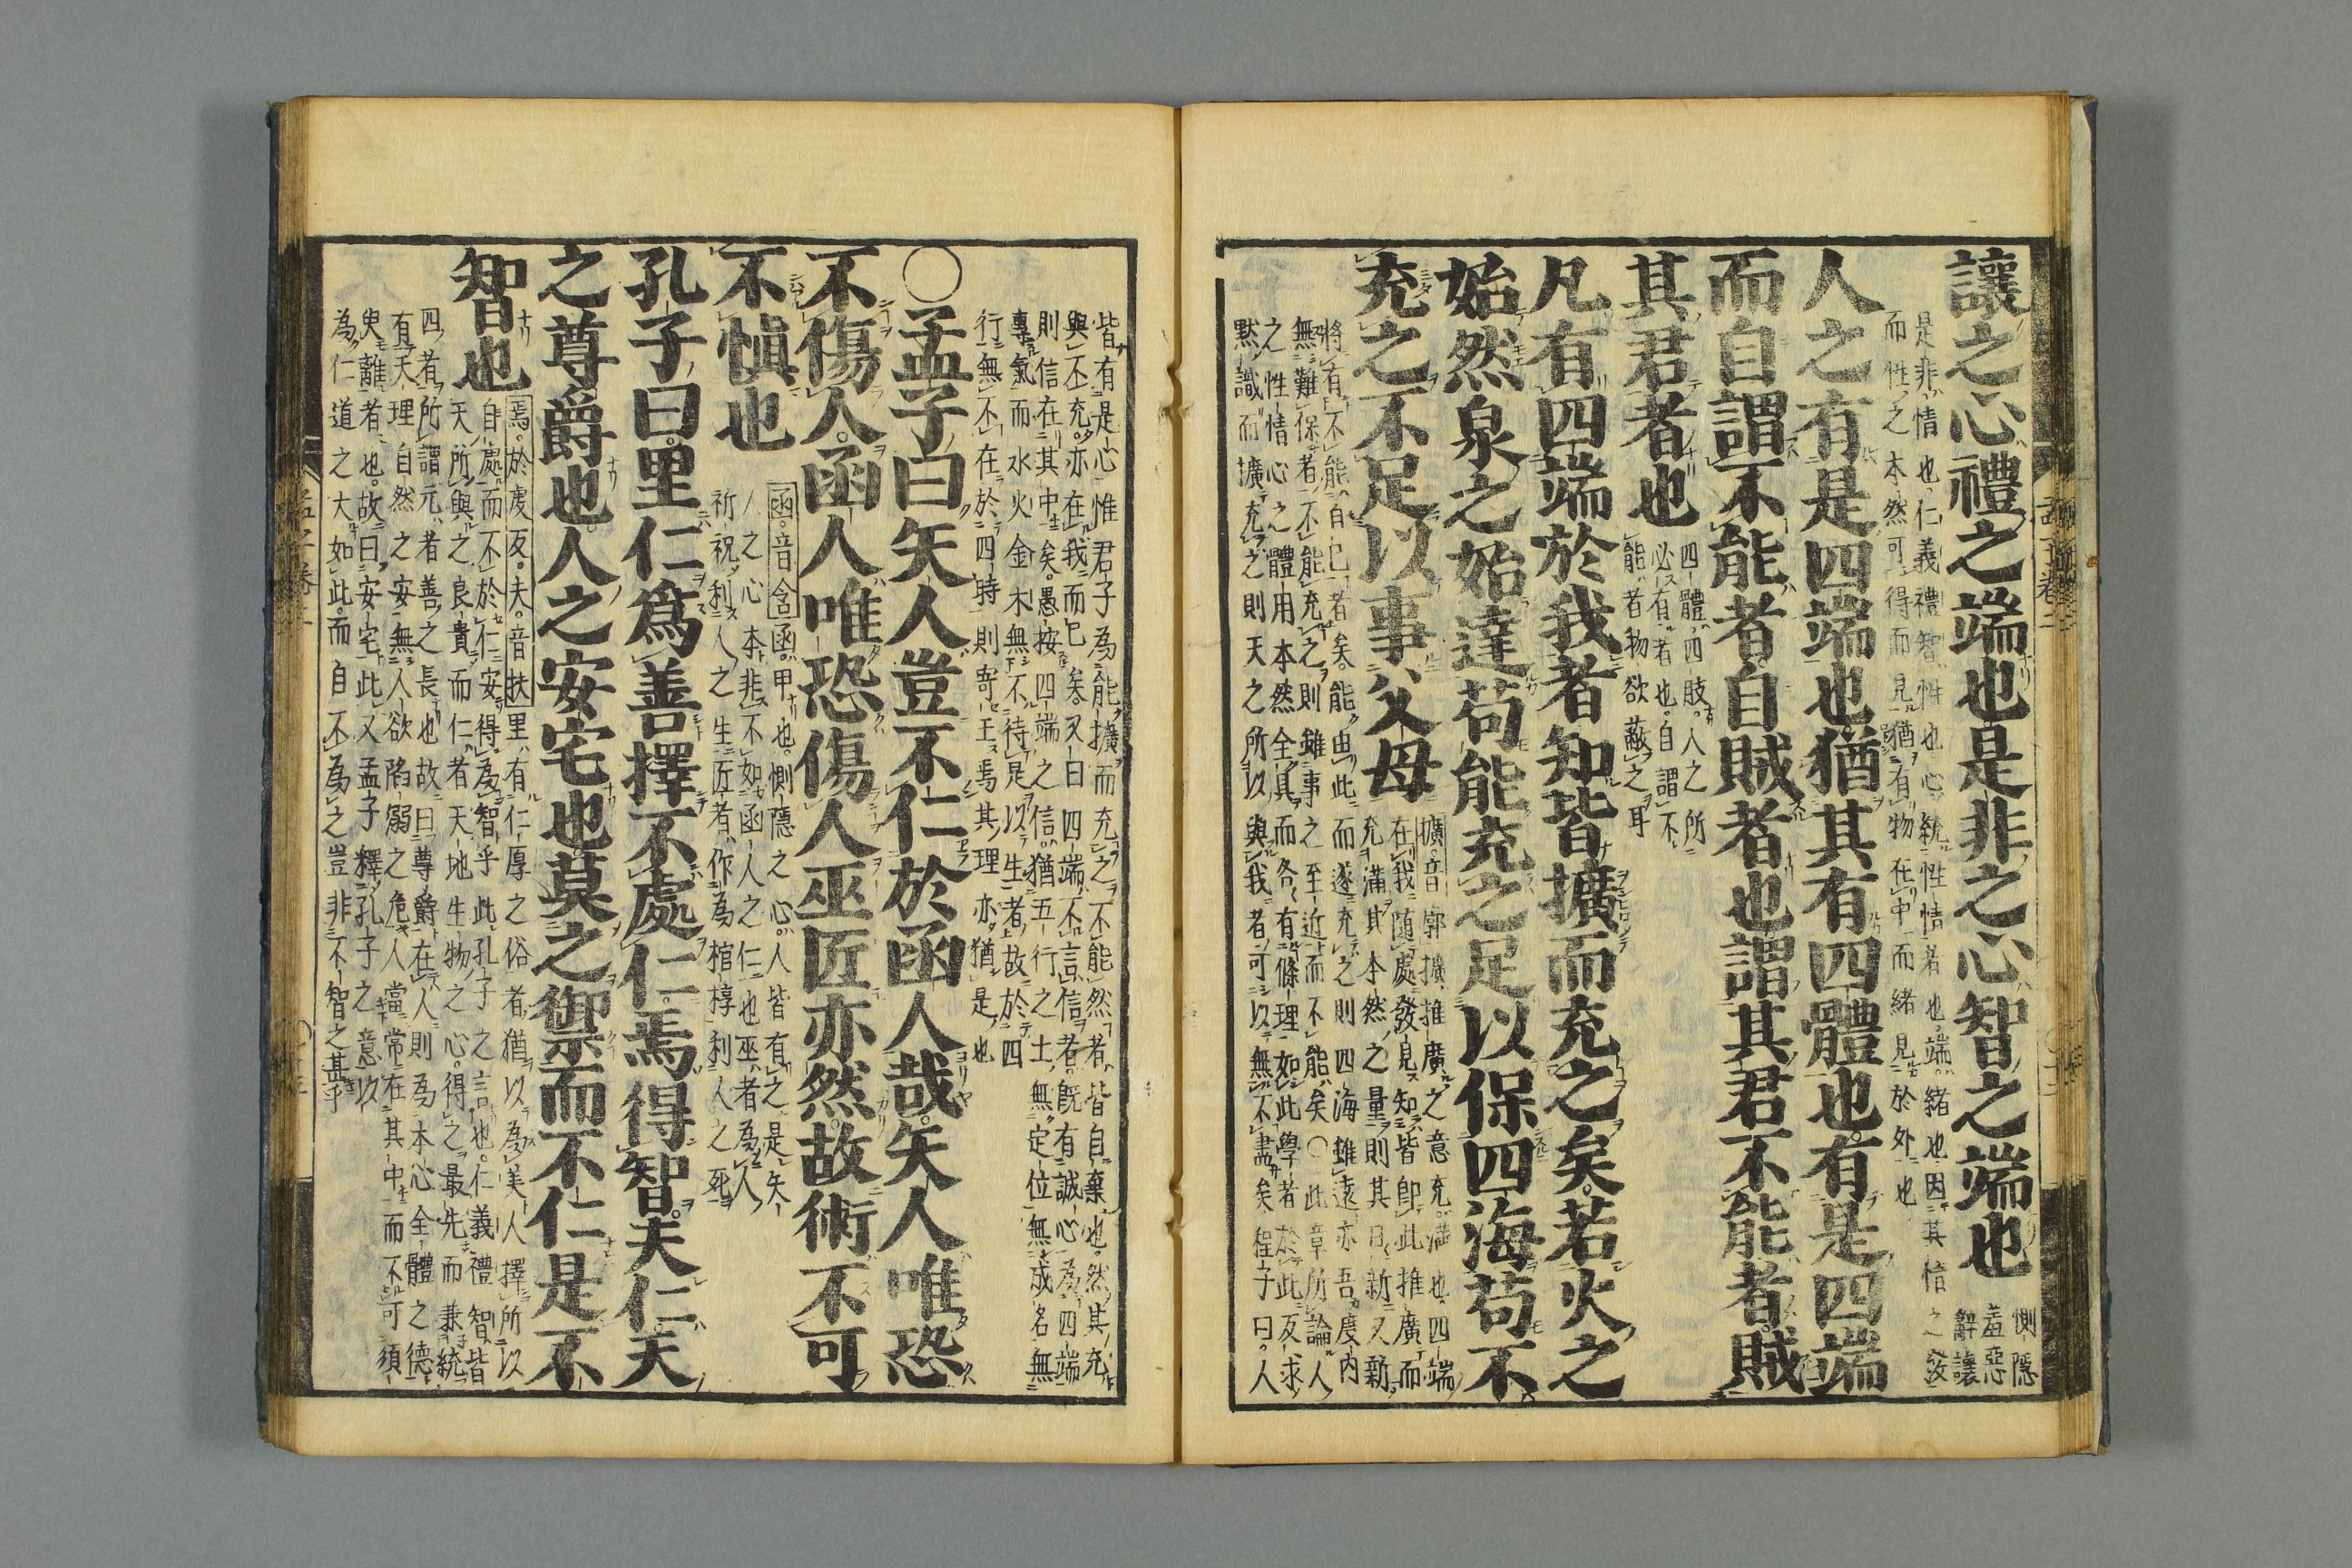 讓之心禮之端也是非之心智之端也
惻隱
羞惡
辭讓
是非情也仁義禮智性也心統性情者也端緒也因其情之發
而性之本然可得而見猶有物在中而緒見於外也
人之有是四端也猶其有四體也有是四端
而自謂不能者自賊者也謂其君不能者賊
其君者也
四體四肢人之所
必有者也自謂不
能者物欲蔽之耳
凡有四端於我者知皆擴而充之矣若火之
始然泉之始達苟能充之足以保四海苟不
充之不足以事父母
擴音廓擴推廣之意充滿也四端
在我隨處發見知皆即此推廣而
充滿其本然之量則其日新又新
將有不能自已者矣能由此而遂充之則四海雖遠亦吾度內
無難保者不能充之則雖事之至近而不能矣○此章所論人
之性情心之體用本然全具而各有條理如此學者於此反求
默識而擴充之則天之所以與我者可以無不盡矣程子曰人
皆有是心惟君子為能擴而充之不能然者皆自棄也然其充
與不充亦在我而已矣又曰四端不言信者既有誠心為四端
則信在其中矣愚按四端之信猶五行之土無定位無成名無
專氣而水火金木無不待是以生者故於四
行無不在於四時則寄王焉其理亦猶是也
○孟子曰矢人豈不仁於函人哉矢人唯恐
不傷人函人唯恐傷人巫匠亦然故術不可
不愼也
函音含函甲也惻隱之心人皆有之是矢
人之心本非不如函人之仁也巫者為人
祈祝利人之生匠者作為棺椁利人之死
孔子曰里仁爲善擇不處仁焉得智夫仁天
之尊爵也人之安宅也莫之禦而不仁是不
智也
焉於虔反夫音扶里有仁厚之俗者猶以為美人擇所以
自處而不於仁安得為智乎此孔子之言也仁義禮智皆
天所與之良貴而仁者天地生物之心得之最先而兼統
四者所謂元者善之長也故曰尊爵在人則為本心全體之德
有天理自然之安無人欲陷溺之危人當常在其中而不可須
臾離者也故曰安宅此又孟子釋孔子之意以
為仁道之大如此而自不為之豈非不智之甚乎